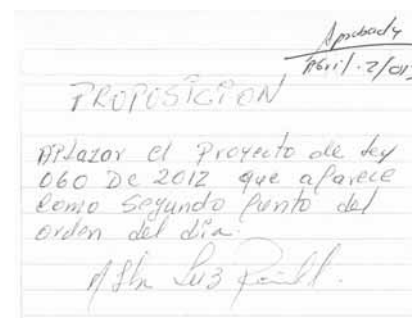 Aprobada
Abril-2/013
PROPOSICION
Aplazar el Proyecto de ley
060 De 2012 que aparece
como Segundo Punto del
orden del día.
Alba Luz